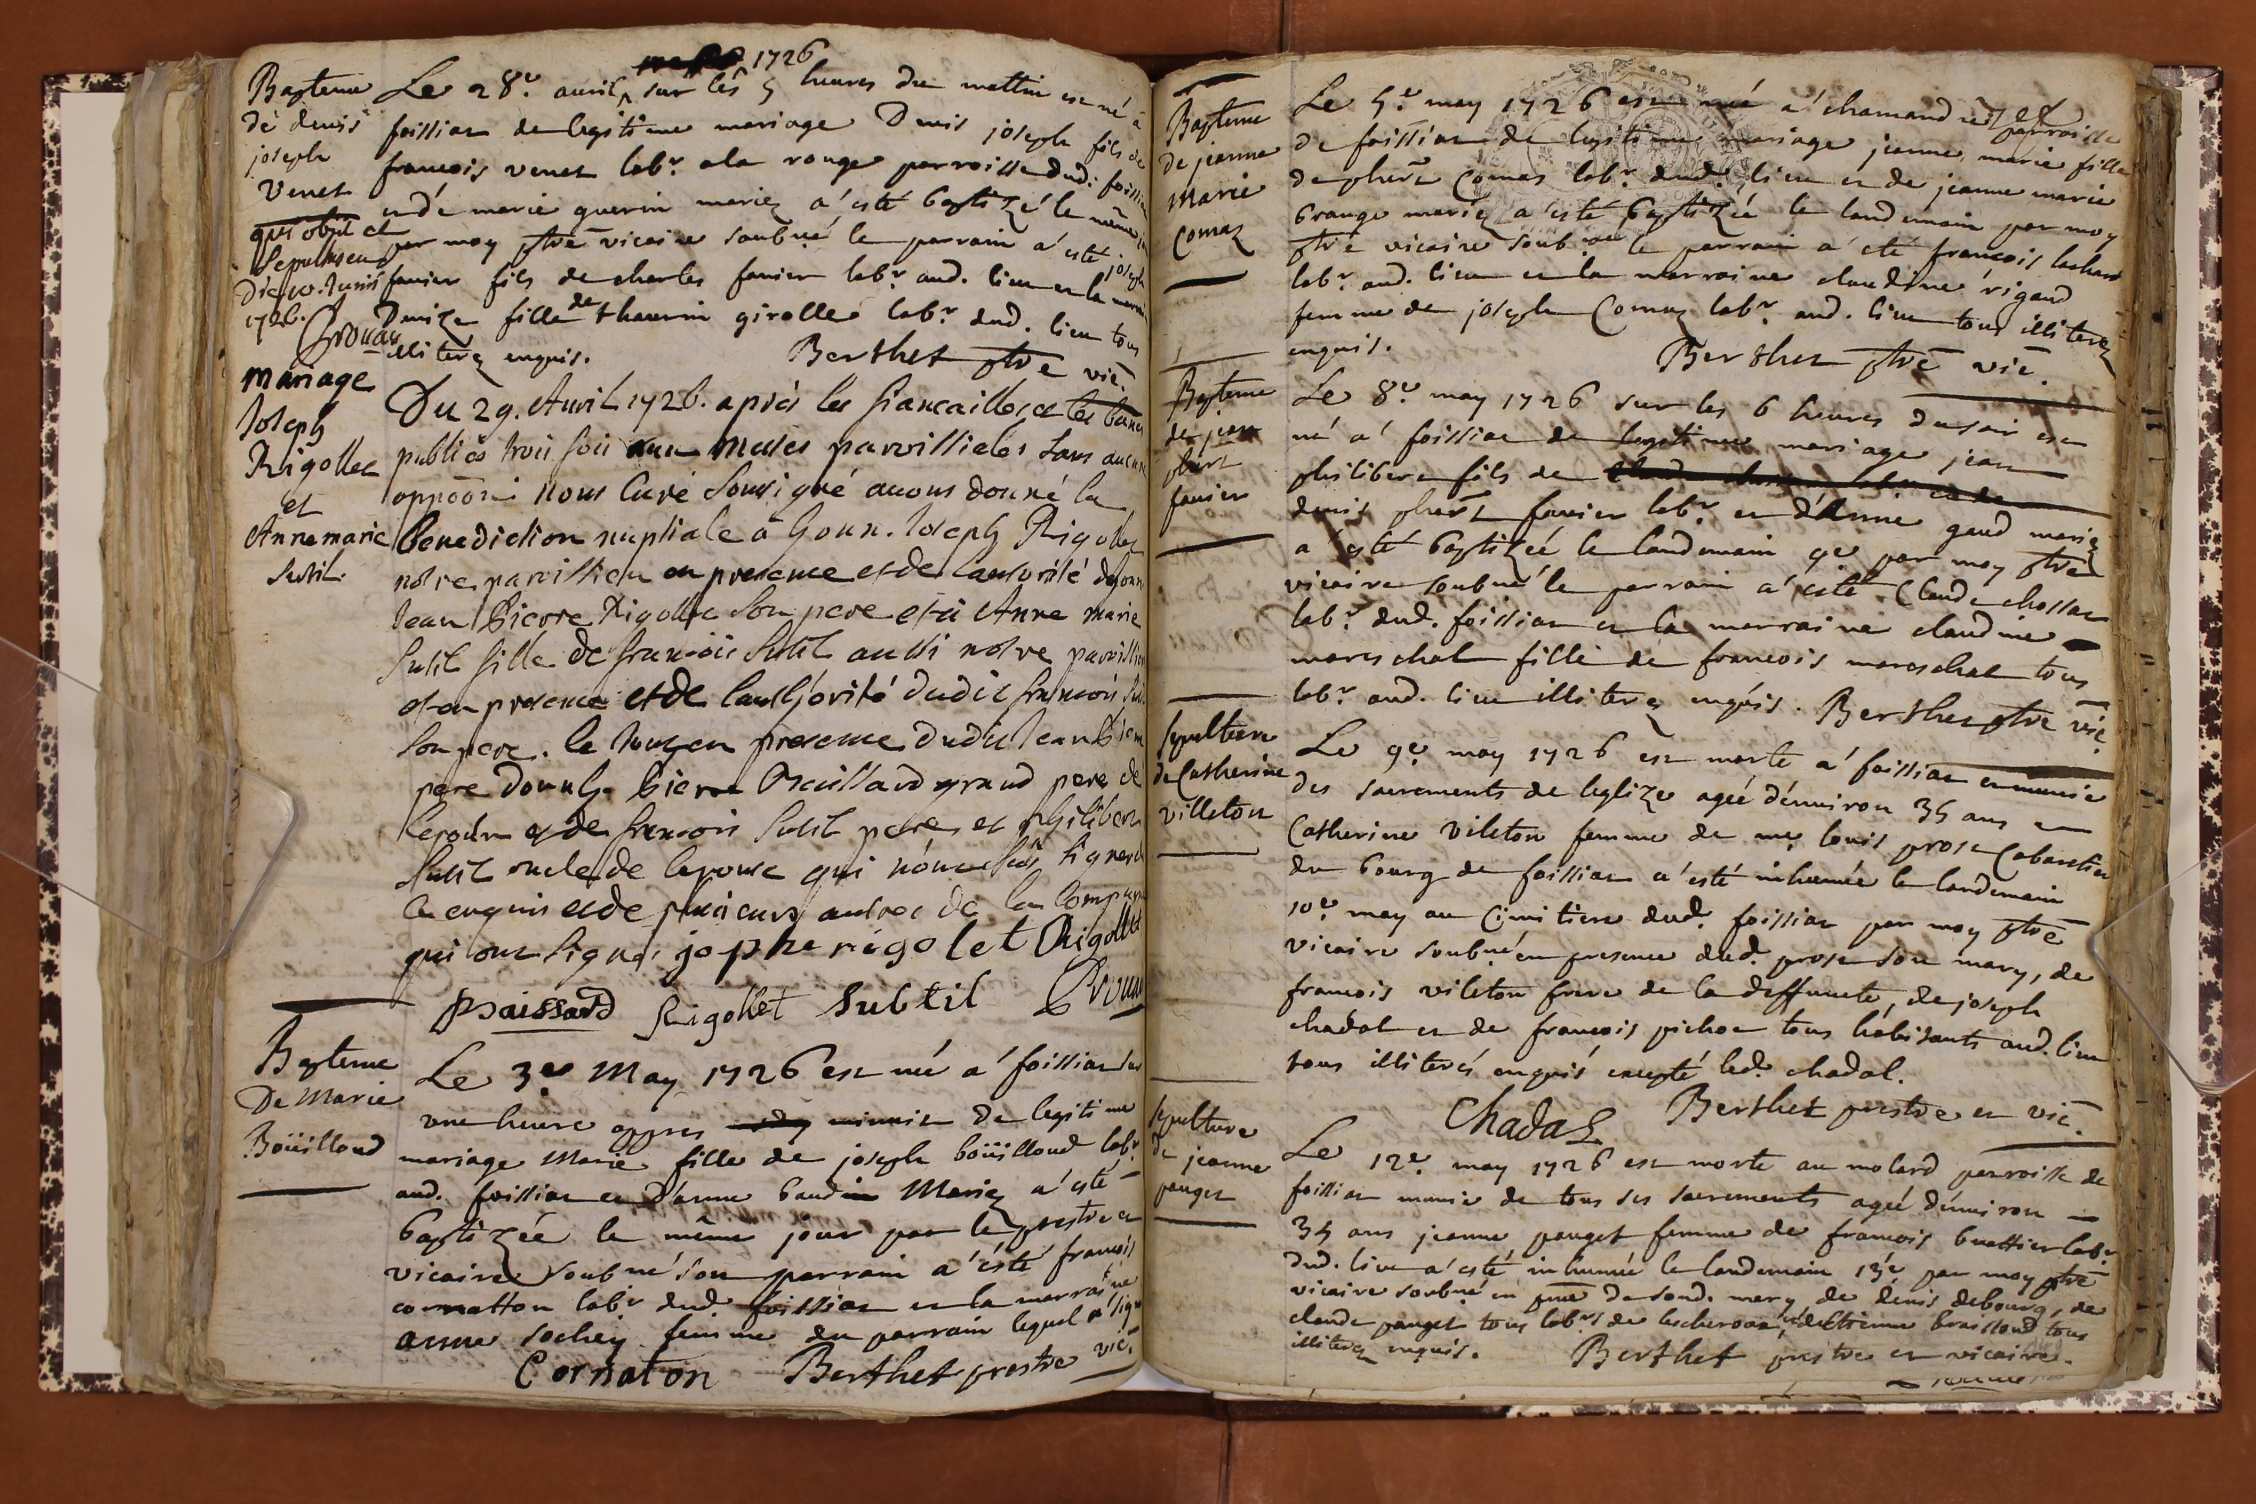 1726
Bapteme
de denis
joseph
Venet
qui obiit et
Sepultus eu
Die 10. Junii
1726.
Le 28e. auril sur les 5 heures du mattin est né à
foissiat de legitime mariage Denis joseph fils de
francois venet labr. a la rouge parroisse dud. foissiat
et de marie guerin mariez a esté baptizé le même
par moy ptre vicaire soubné le parrain a esté joseph
fauier fils de charles fauier labr. aud. lieu et la marraine
Denize fille de thaurin girolle labr. dud. lieu tous
illiterez enquis. Berthet ptre vic.
Mariage
Joseph
Rigollet
et
Anne marie
Sutil.
Du 29. Auril 1726. après les fiancailles et les bancs
publiés trois fois aux messes parroissieles sans aucune
oppõon nous Curé Soussigné auons donné la
Benediction nuptiale a honn. Joseph Rigollet
notre parroissien en presence et de l'autorité de honn
Jean Pierre Rigollet Son pere et a Anne marie
Sutil fille de francois Sutil aussi notre parroissien
et en presence et de l'authorité dudit francois
Son pere. le tout en presence dudit Jean Pierre
pere d'honn. Pierre Braissard grand pere de
l'epoux et de francois Sutil pere et philibert
Sutil oncle de l'epouse qui n'ont sceu signer
ce enquis et de plusieurs autres de la compagnie
qui ont signé. jophe rigolet Rigollet
Braissard Rigollet Subtil
Bapteme
De Marie
Boüilloud
Le 3e May 1726 est né a foissiat sur
vne heure appres minuit de legitime
mariage Marie fille de joseph boüilloud labr.
aud. foissiat et d'anne baudin Mariez a esté
baptizée le même jour par le prestre et
vicaire soubné son parrain a esté francois
cornatton labr dud. foissiat et la marraine
anne sochey femme du parrain lequel a signé
Cornaton Berthet prestre vic.
Bapteme
de jeanne
Marie
Comaz
Le 5e. may 1726 est née a chamandrey parroisse
de foissiat de legitime mariage jeanne marie fille
de phibert Comas labr. dud. lieu et de jeanne marie
brange mariez a esté baptizée le landemain par moy
ptre vicaire soubné le parrain a eté francois lachard
labr. aud. lieu et la marraine claudine rigaud
femme de joseph Comaz labr. aud. lieu tous illiterez
enquis. Berthet ptre vic.
Bapteme
de jean
phibert
fauier
Le 8e. may 1726 sur les 6 heures du soir est
né a foissiat de legitime mariage jean
philibert fils de
denis phibert fauier labr. et d'Anne gaud mariez
a esté baptizéé le landemain 9e par moy ptre
vicaire soubné le parrain a esté Claude chossat
labr. dud. foissiat et la marraine claudine
mareschal fille de francois mareschal tous
labr. aud. lieu illiterez enquis. Berthet ptre vic.
Sepulture
de Catherine
villeton
Le 9e. may 1726 est morte a foissiat et munie
des sacrements de leglize ageé d'enuiron 35 ans
Catherine vileton femme de me. louis prost Cabaretier
du bourg de foissiat a esté inhumée le landemain
10e. may au Cimitiere dud. foissiat par moy ptre
vicaire soubné en presence dud. prost son mary, de
francois vileton frere de la deffuncte, de joseph
chadal et de francois pichot tous habitants aud. lieu
tous illiterés enquis excepté led. chadal.
Chadal Berthet prestre et vic.
sepulture
de jeanne
pauget
Le 12e. may 1726 est morte au molard parroisse de
foissiat munie de tous ses sacrements ageé d'enuiron
35 ans jeanne pauget femme de francois buattier labr.
dud. lieu a esté inhumée le landemain 13e par moy ptre
vicaire soubné en pnce de sond. mary de denis debourg, de
claude pauget tous labrs de lescheroux, d'estienne braissoud tous
illiterez enquis. Berthet prestre et vicaire.